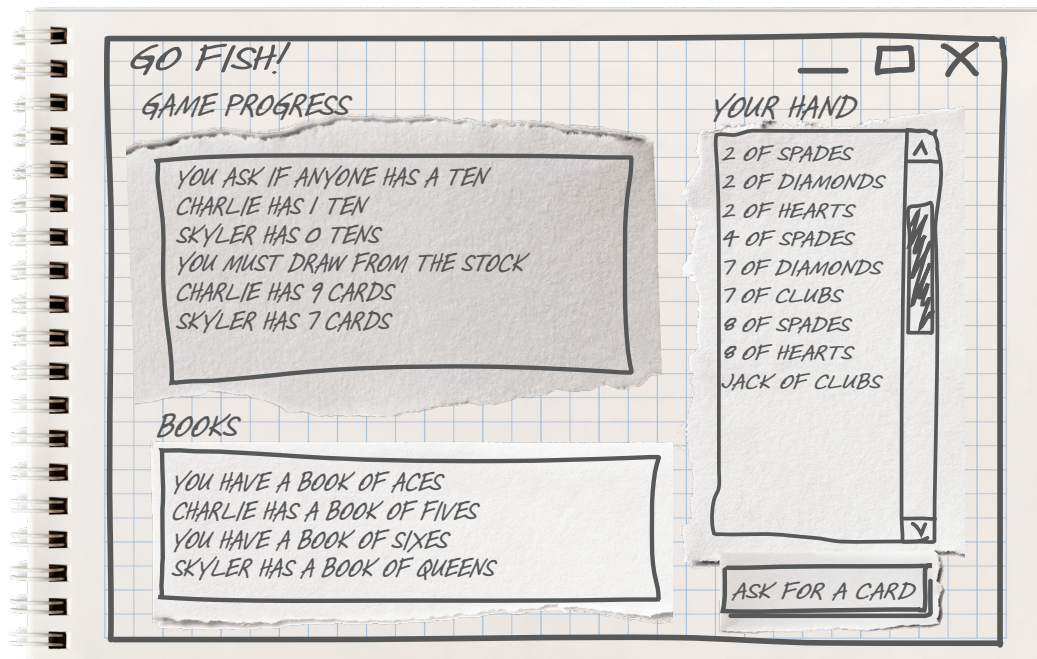 GO FISH!
GAME PROGRESS
YOU ASK IF ANYONE HAS A TEN
CHARLIE HAS 1 TEN
SKYLER HAS 0 TENS
YOU MUST DRAW FROM THE STOCK
CHARLIE HAS 9 CARDS
SKYLER HAS 7 CARDS
BOOKS
YOU HAVE A BOOK OF ACES
CHARLIE HAS A BOOK OF FIVES
YOU HAVE A BOOK OF SIXES
SKYLER HAS A BOOK OF QUEENS
YOUR HAND
2 OF SPADES
2 OF DIAMONDS
2 OF HEARTS
4 OF SPADES
7 OF DIAMONDS
7 OF CLUBS
8 OF SPADES
8 OF HEARTS
JACK OF CLUBS
ASK FOR A CARD